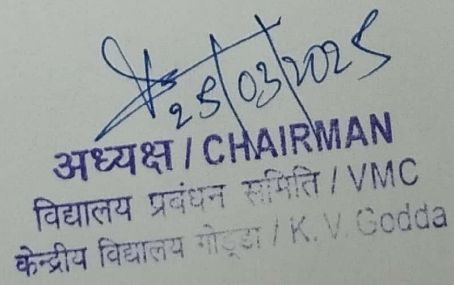 25/03/2025
अध्यक्ष / CHAIRMAN
विद्यालय प्रबंधन समिति / VMC
केन्द्रीय विद्यालय गोड्डा / K. V. Godda